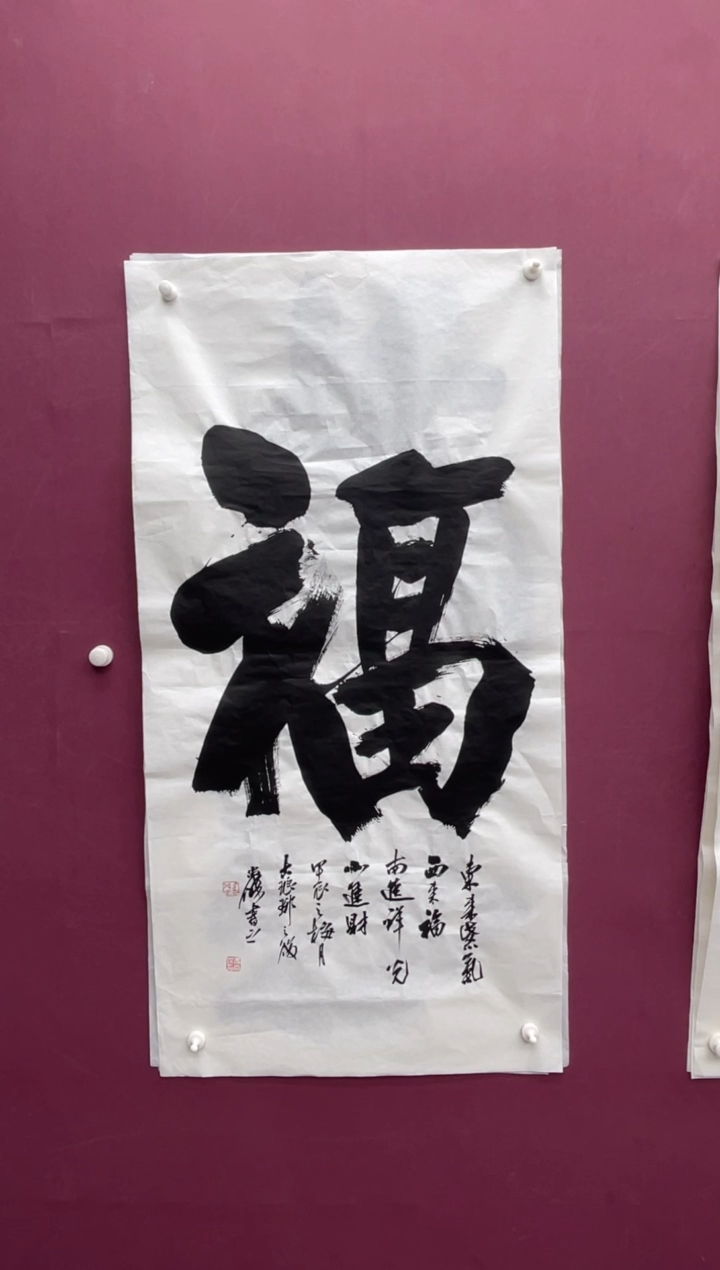 福
東來紫氣
西來福
南進祥光
北進財
甲辰之梅月
書